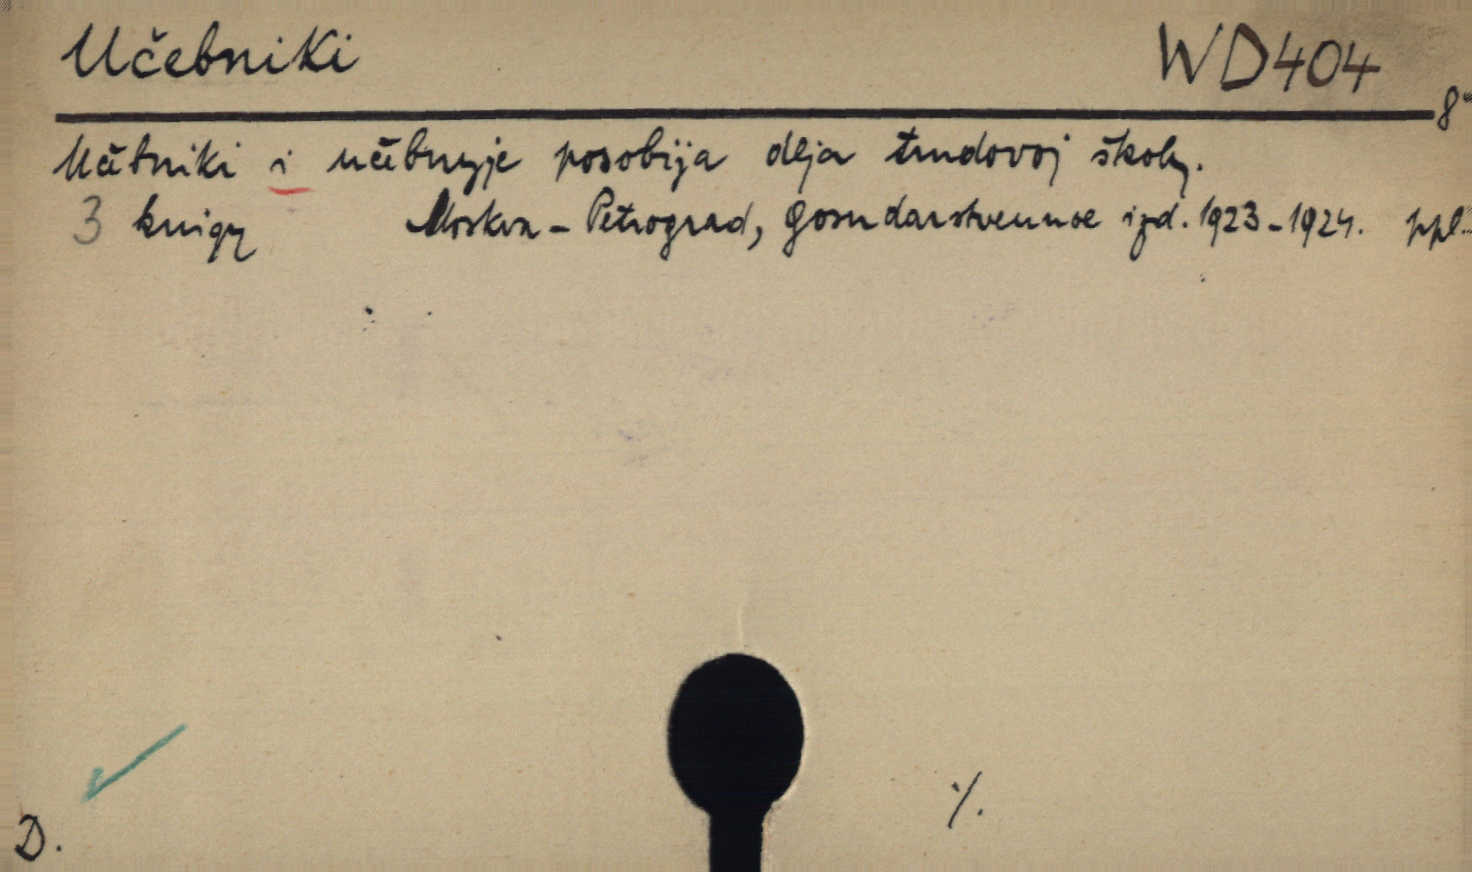 Učebniki WD404
8°
Učebniki i učebnyje posobija dlja trudovoj školy.
3 knigy Moskva - Petrograd, Gosudarstvennoe izd. 1923-1924. ppl.
D. ·/.